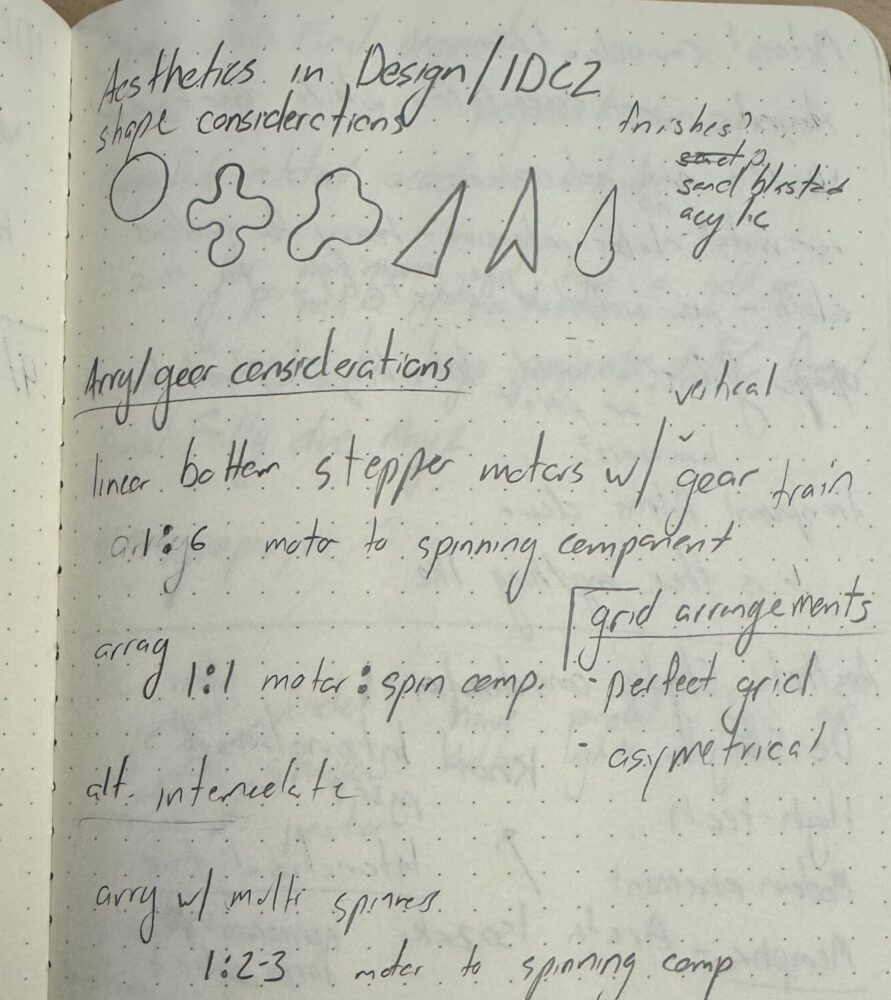 Aesthetics in Design/IDC2
shape considerations
finishes?
sand blasted
acylic
Arry/gear considerations
vertical
linear bottem stepper motors w/ gear train
1:6 motor to spinning component
array
1:1 motor:spin comp.
grid arrangements
- perfect grid
- asymetrical
alt.
arry w/ multi spinners
1:2-3 motor to spinning comp